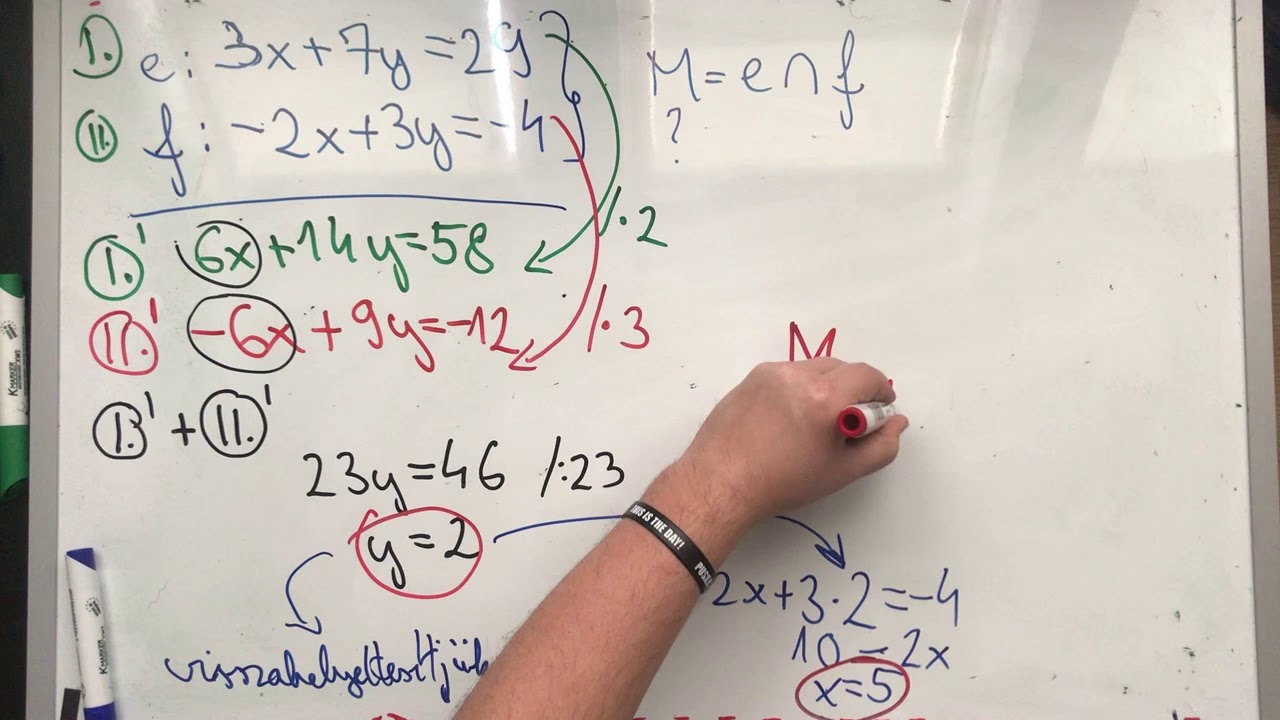 I. e: 3x+7y=29
M=e∩f
II. f: -2x+3y=-4
?
I.' 6x+14y=58 /·2
II.' -6x+9y=-12 /·3
M
I.'+II.'
23y=46 /:23
THIS IS THE DAY!
y=2
2x+3·2=-4
10=2x
visszahelyettesítjük
x=5